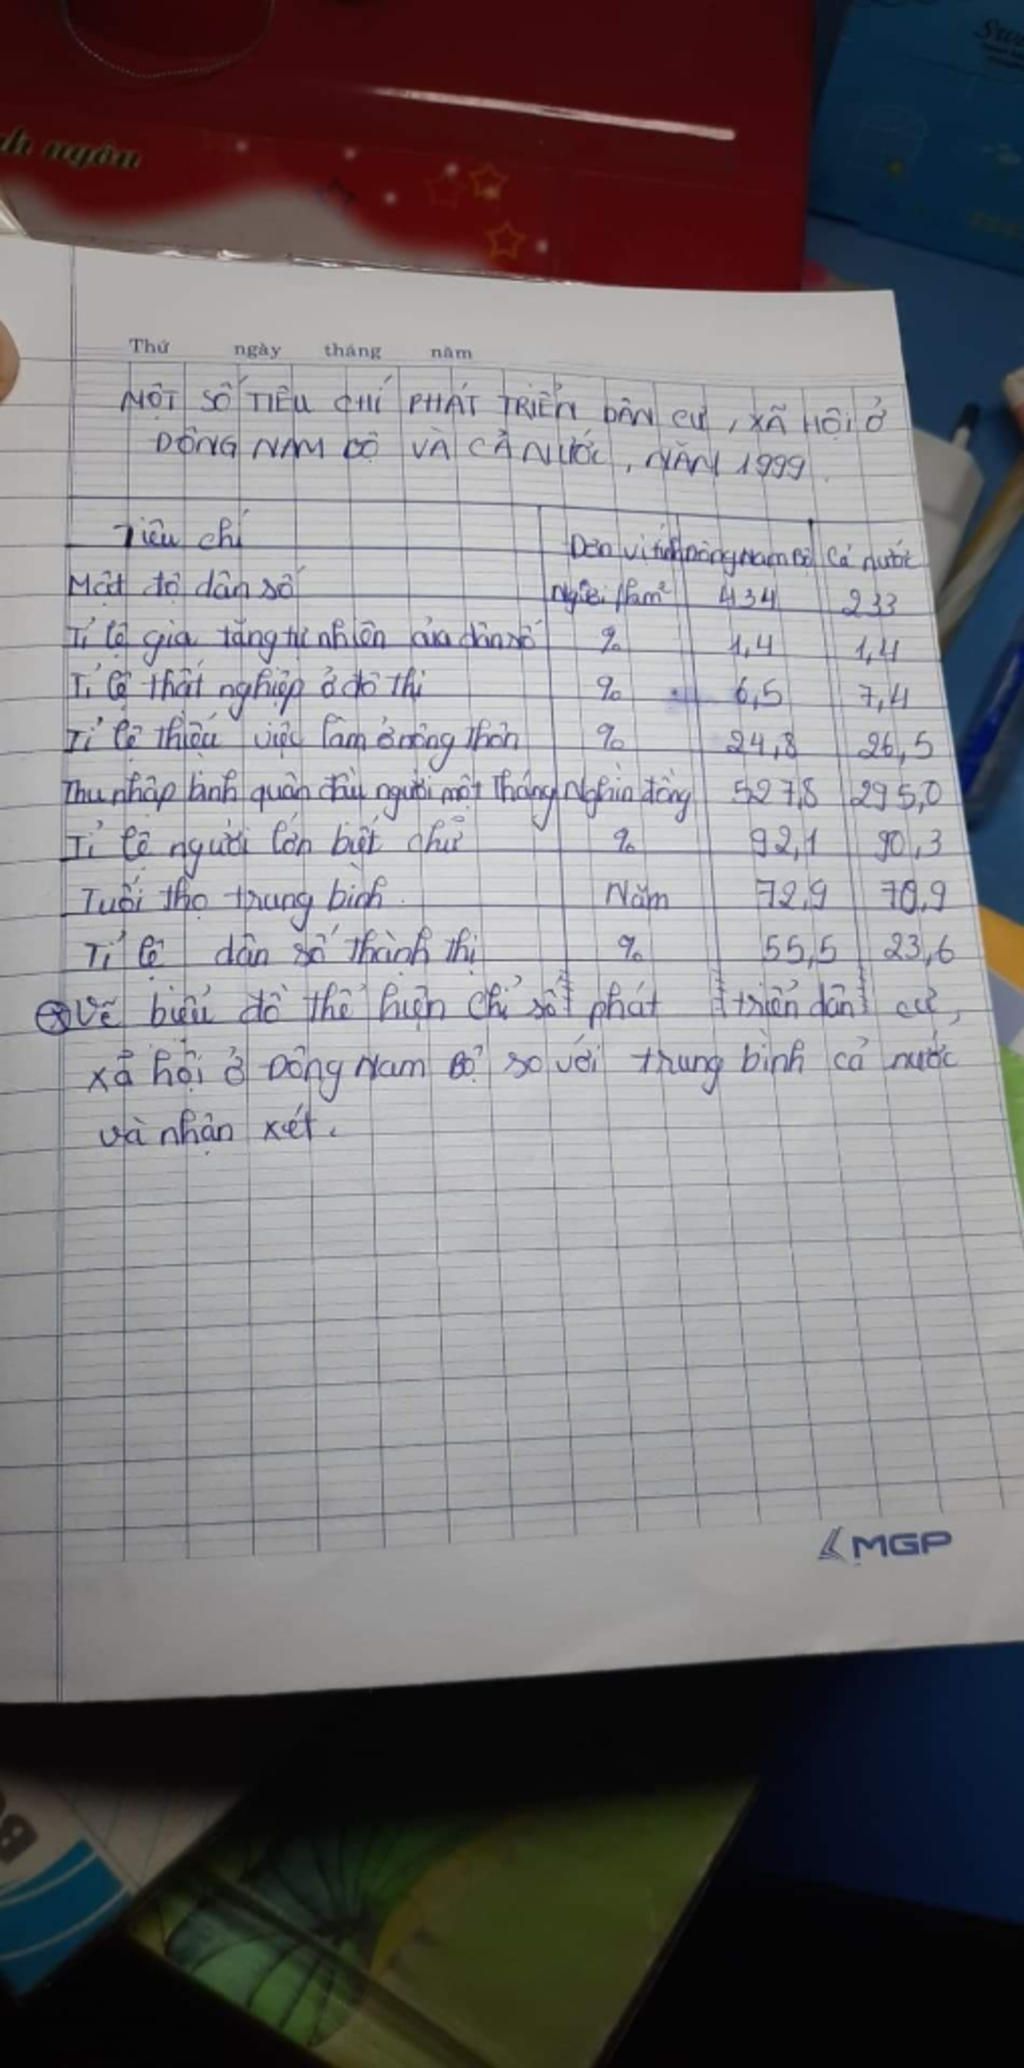 nh ngôn
Thứ ngày tháng năm
MỘT SỐ TIÊU CHÍ PHÁT TRIỂN DÂN CƯ, XÃ HỘI Ở
ĐÔNG NAM BỘ VÀ CẢ NƯỚC, NĂM 1999.
Tiêu chí Đơn vị tính Đông Nam Bộ Cả nước
Mật độ dân số Người/km² 434 233
Tỉ lệ gia tăng tự nhiên của dân số % 1,4 1,4
Tỉ lệ thất nghiệp ở đô thị % 6,5 7,4
Tỉ lệ thiếu việc làm ở nông thôn % 24,8 26,5
Thu nhập bình quân đầu người một tháng Nghìn đồng 527,8 295,0
Tỉ lệ người lớn biết chữ % 92,1 90,3
Tuổi thọ trung bình Năm 72,9 70,9
Tỉ lệ dân số thành thị % 55,5 23,6
Vẽ biểu đồ thể hiện chỉ số phát triển dân cư,
xã hội ở Đông Nam Bộ so với trung bình cả nước
và nhận xét.
MGP